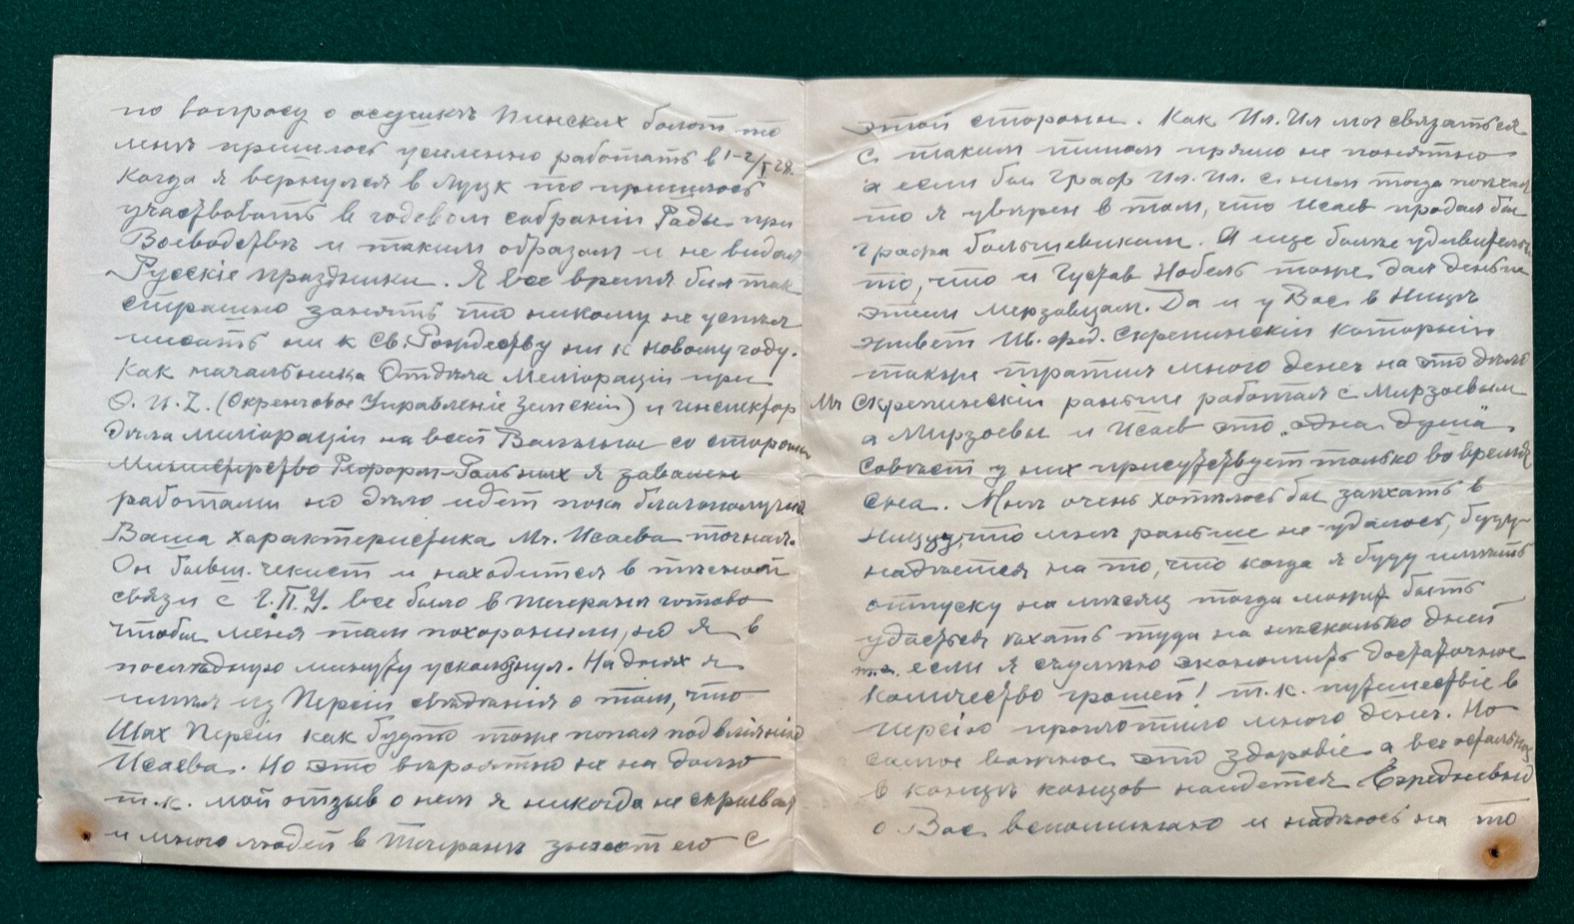 по вопросу о осушкѣ Пинских болот то
мнѣ пришлось усиленно работать в 1-2/I 28.
Когда я вернулся в Луцк то пришлось
участвовать в годовом собранiи Рады при
Воеводствѣ и таким образом и не видал
Русскiе праздники. Я все время был так
страшно занятъ что никому не успѣл
писать ни к Св. Рождеству ни к новому году.
Как начальника Отдѣла Мелiорацiи при
О.U.Z. (Окренговое Управленiе Земскiй) и инспектор
дѣла милiорацiи на всей Волыни со стороны
Министерство Реформ Рольных я завален
работами но дѣло идет пока благополучно
Ваша характеристика Mr. Исаева точная.
Он бывш. чекист и находится в тѣсной
связи с Г.П.У. все было в Тегеранѣ готово
чтобы меня там похоронили, но я в
послѣднюю минуту ускользнул. На днях я
имѣл из Персiи свѣдѣнiя о том, что
Шах Персiи как будто тоже попал под влiянiю
Исаева. Но это вѣроятно не на долго
т.к. мой отзыв о нем я никогда не скрывал
и много людей в Тегеранѣ знают его с
этой стороны. Как Ил. Ил мог связаться
с таким типом прямо не понятно
а если бы граф Ил. Ил. с ним тогда поѣхал
то я увѣрен в том, что Исаев продал бы
графа большевикам. А еще болѣе удивительно
то, что и Густав Нобель тоже дал деньги
этим мерзавцам. Да и у Вас в Ницѣ
живет Ив. Фед. Скрепинскiй которiй
также тратил много денег на это дѣло
Mr Скрепинскiй раньше работал с Мирзоевым
а Мирзоевы и Исаев это „одна душа"
совѣсть у них присутствует только во время
сна. Мнѣ очень хотѣлось бы заѣхать в
Ниццу, что мнѣ раньше не удалось, буду
надѣется на то, что когда я буду имѣть
отпуску на мѣсяц тогда может быть
удастся ѣхать туда на нѣсколько дней
т.е. если я сумѣю экономить достаточное
количество грошей! т.к. путешествiе в
Персiю проглотило много денег. Но
самое важное это здоровiе а все остальное
в концѣ концов найдется Ежедневно
о Вас вспоминаю и надѣюсь на то